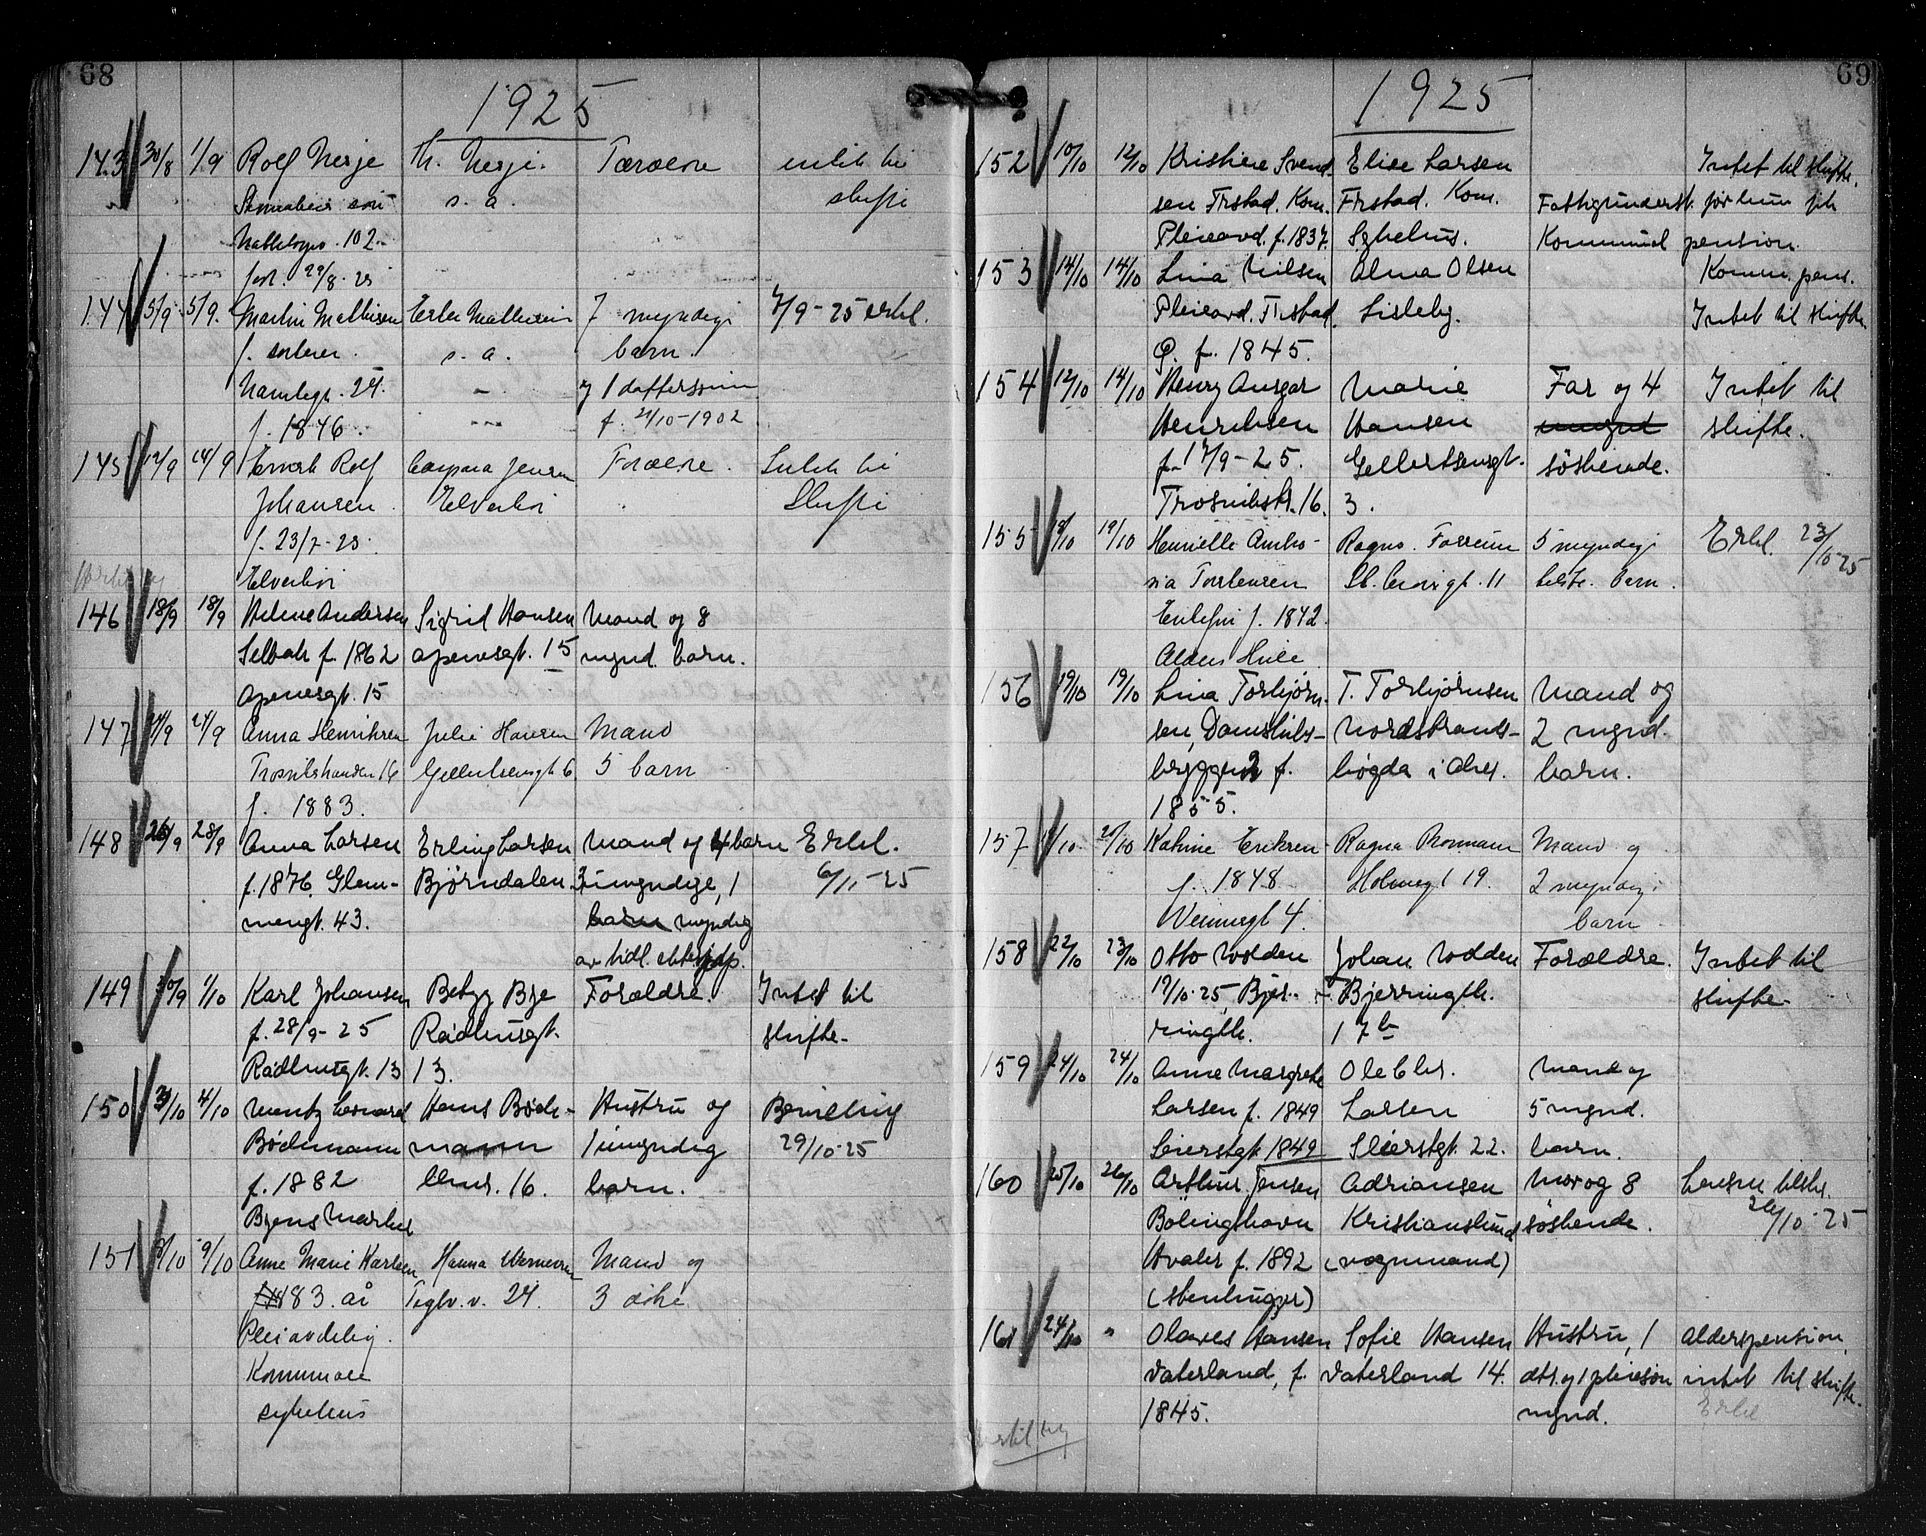 68
1925
143 30/8 1/9 Rolf Nesje Th. Nesje. intet til
s. a. skifte
102
født 29/8-25
144 5/9 5/9. Martin Mathisen Mathisen 7 myndige 7/9-25 erkl.
f. s. a. barn.
24. - og 1 dattersønn
f. 1846. f. 21/10-1902
145 12/9 14/9 Rolf Caspara Jensen Forældre. Intet til
Johansen Elverhøi Skifte
f. 23/7-25.
Elverhøi
146 18/9 18/9 Helene Andersen Sigrid Hansen Mand og 8
Selbak f. 1862 Apenesgt. 15 mynd. barn.
Apenesgt. 15
147 21/9 Anna Henriksen Julie Hansen Mand
Trosvikstranden 16 Gellertsensgt 6 5 barn
f. 1883.
148 26/9 28/9 Anna Larsen Erling Larsen Mand og 4 barn Erkl.
f. 1876 Glem- Bjørndalen. 3 umyndige, 1 6/11-25
mengt. 43. barn myndig
av tidl. ekteskap.
149 30/9 1/10 Karl Johansen Betzy Bye Forældre. Intet til
f. 28/9-25 Rådhusgt. skifte-
Rådhusgt. 13 13.
150 3/10 4/10 Mentz Leonard Hans Böch- Hustru og Bevilling
Böchmann mann 1 umyndig 29/10-25
f. 1882 16. barn.
Byens Marker
151 8/10 9/10 Anne Marie Karlsen Hanna Mand og
83. år Teglv. v. 24. 3
Pleieavdeling.
Kommunale
sykehus
69
1925
152 10/10 12/10 Kristine Svend- Elise Larsen Intet til skifte.
sen Frstad. Kom. Frstad. Kom. Fattigunderst. før hun fik
Pleieavd. f. 1837. Sykehus. Kommunal pension.
153 14/10 14/10 Lina Nilsen Alma Olsen Komm. pens.
Pleieavd. Frstad. Lisleby. Intet til skifte
f. 1845.
154 12/10 14/10 Henry Ansgar Marie Far og 4 Intet til
Henriksen Hansen umynd skifte.
f. 17/9-25. Gellertsensgt. søskende.
Trosvikstr. 16. 3.
155 18/10 19/10 Henriette Ambro- Ragna. 5 myndige Erkl. 23/10-25
sia Torstensen St. Croixgt. 11 barn.
Enkefru f. 1842.
Alders Hvile
156 19/10 19/10 Lina Torbjørn- T. Torbjørnsen Mand og
sen, Damskibs- Nordstrands- 2 mynd.
bryggen 2 f. høgda i Akers. barn.
1855.
157 20/10 Katrine Eriksen Ragna Mand og
f. 1848 Holmegt 19. 2 myndige
4. barn.
158 22/10 23/10 Otto Wolden Johan Wolden Forældre. Intet til
19/10-25, Bjer- Bjerringtk. skifte-
ringtk. 17b
159 24/10 24/10 Anne Margrete Ole Chr. Mand og
Larsen f. 1849 Larsen 5 mynd.
1849 22. barn.
160 25/10 26/10 Arthur Jensen Adriansen Mor og 8 Lensm. tilskr.
Bölingshavn Kristianslund søskende. 26/10-25
Hvaler f. 1892 (vognmand)
(stenhugger)
161 24/10 " Olaves Hansen Sofie Hansen Hustru, 1 Alderspension,
Vaterland, f. Vaterland 14. dtr. og 1 pleiesøn intet til skifte.
1845. mynd. Erkl